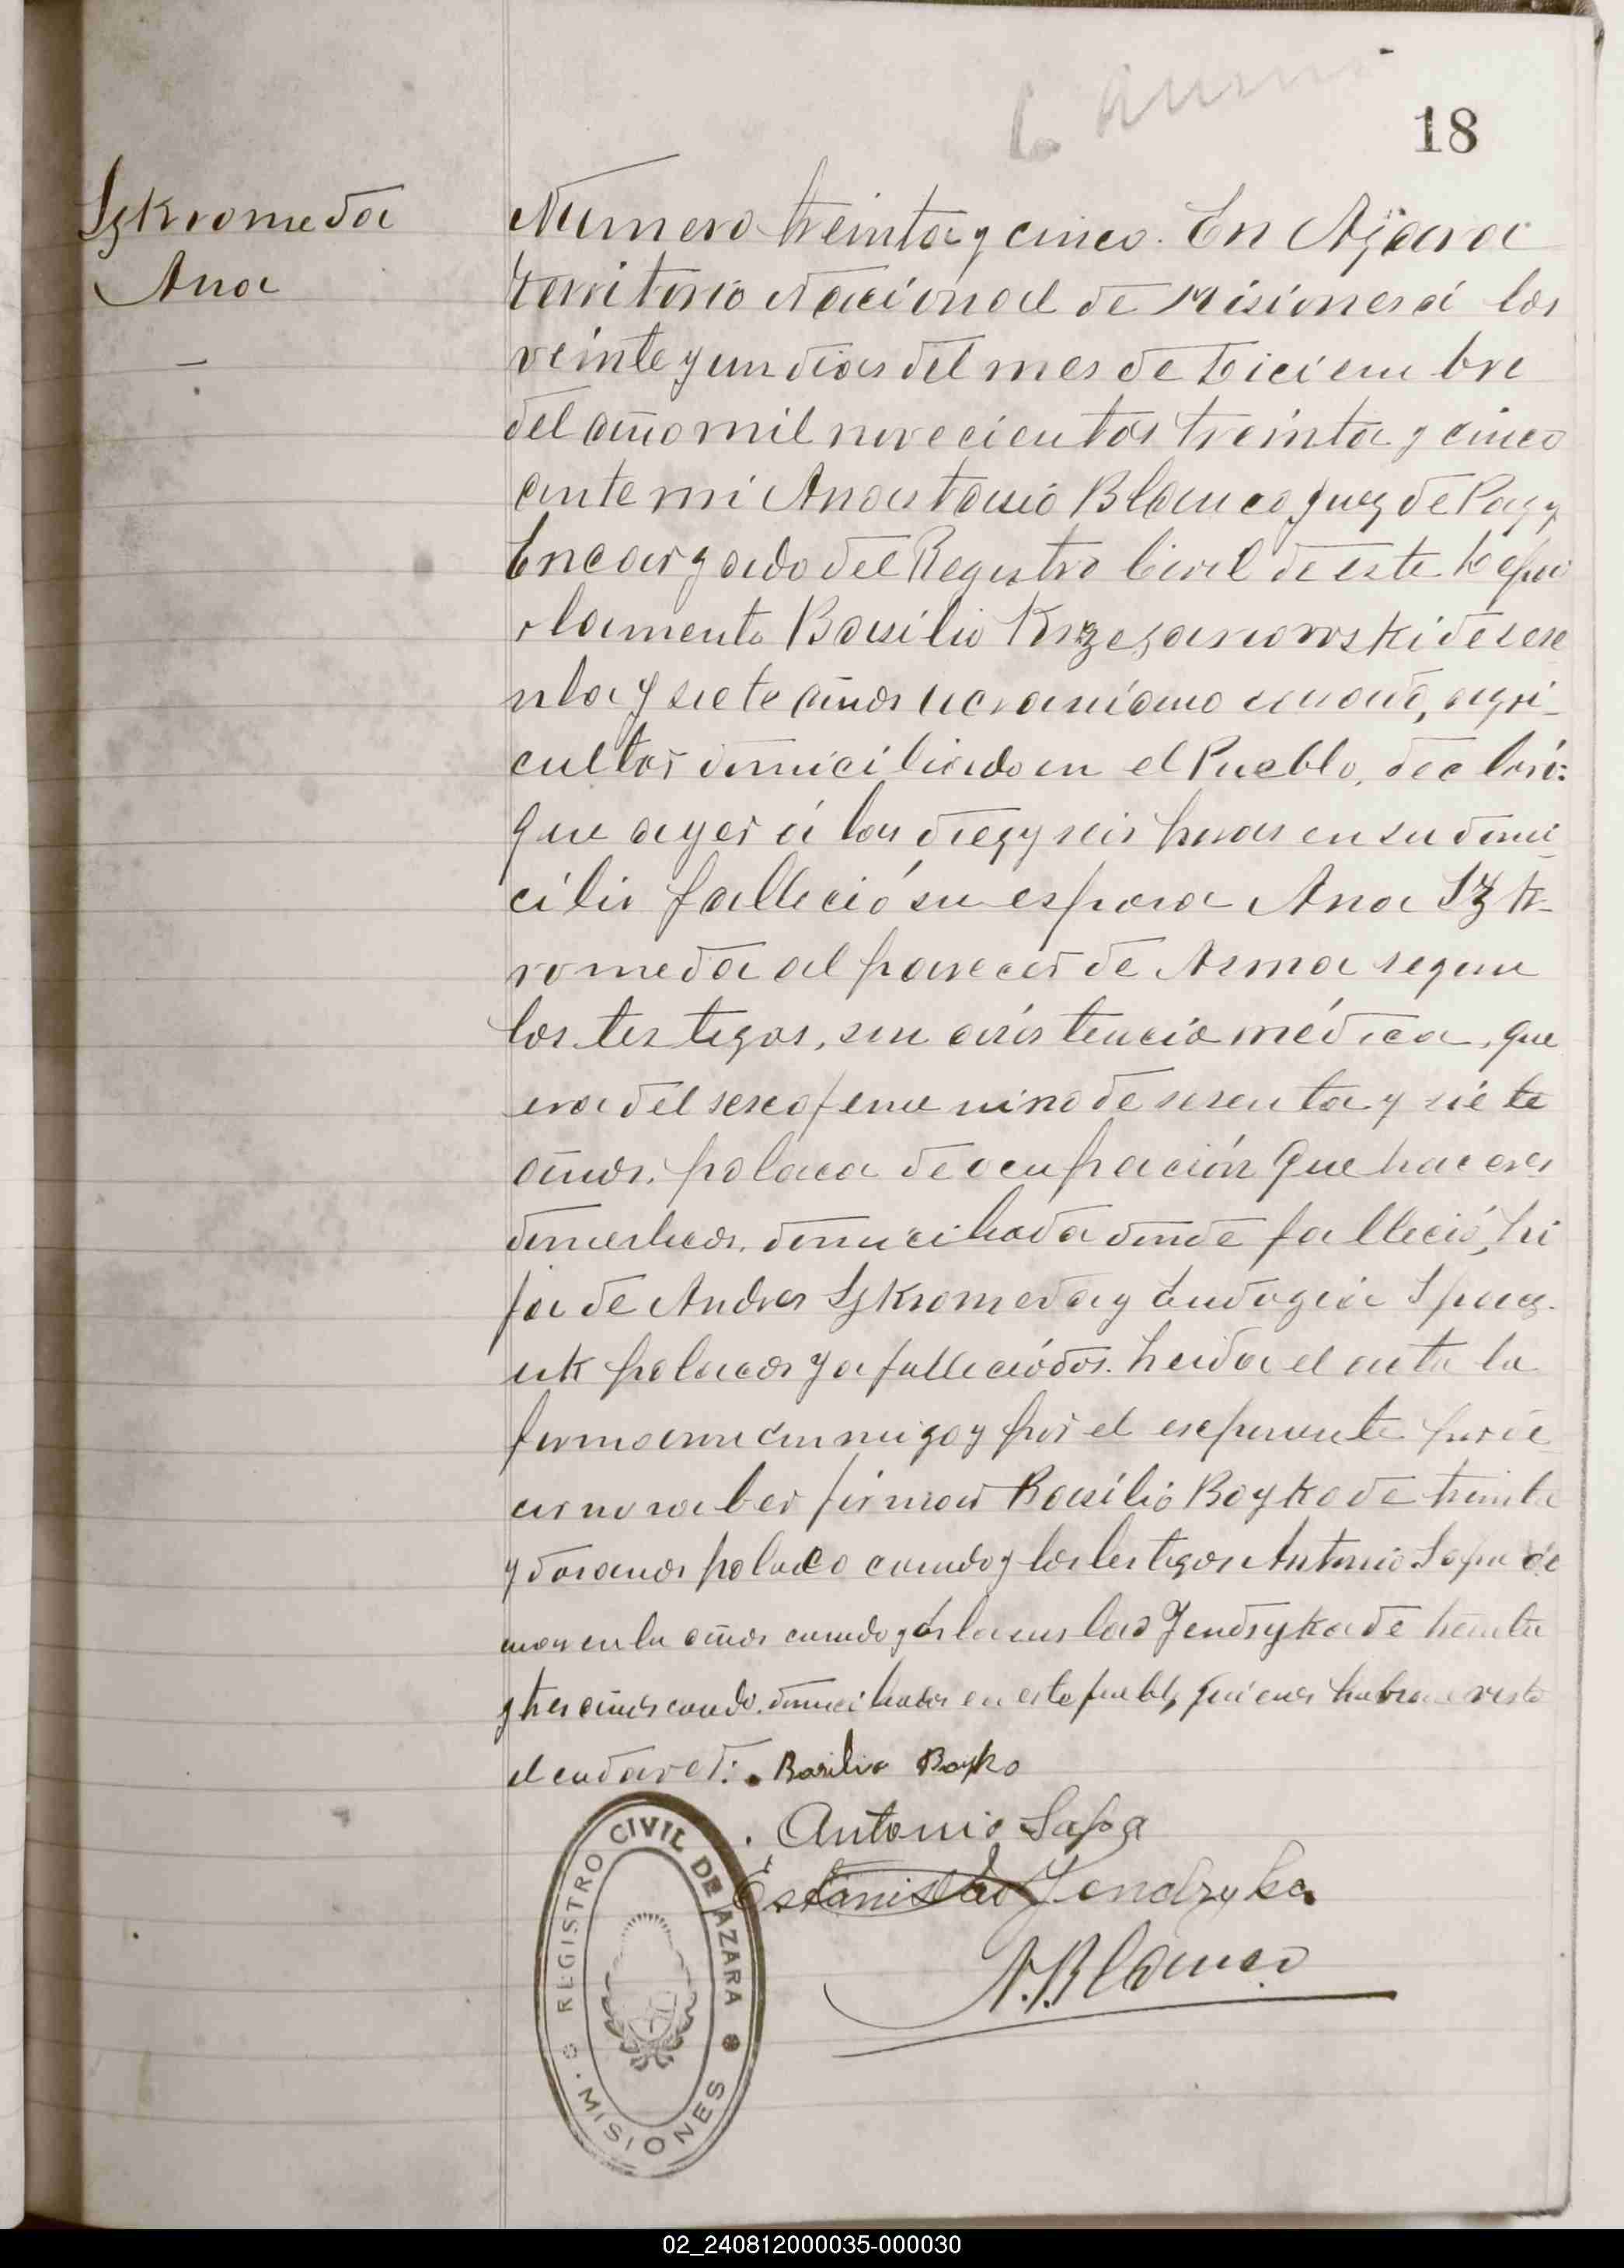 18
Szkromeda
Ana
Número treinta y cinco. En Azara
Territorio Nacional de Misiones á los
veinte y un dias del mes de Diciembre
del año mil novecientos treinta y cinco
ante mi Anastasio Blanco Juez de Paz y
Encargado del Registro Civil de este Depar
tamento Basilio Krzesanowski de sese
nta y siete años ucraniano casado, agri-
cultor domiciliado en el Pueblo, declaró:
Que ayer á las diez y seis horas en su domi
cilio falleció su esposa Ana Szk-
romeda al parecer de Asma segun
los testigos, sin asistencia médica, que
era del sexo femenino de sesenta y siete
años, polaca de ocupación Quehaceres
domesticos, domiciliada donde falleció, hi
ja de Andres Szkromeda y Eudogia
uk polacos ya fallecidos. Leida el acta la
firmaron conmigo y por el exponente por de
cir no saber firmar Basilio Boyko de treinta
y dos años polaco casado y los testigos Antonio Sapa de
cuarenta años casado y Estanislao Jendryka de treinta
y tres años casado, domiciliados en este pueblo, quienes habian visto
el cadaver:. Basilio Boyko
Antonio Sapa
Estanislao Jendryka
A. Blanco
REGISTRO CIVIL DE AZARA
MISIONES
02_240812000035-000030